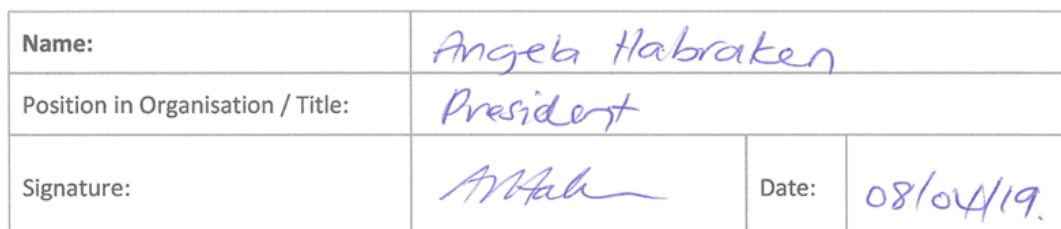 Name: Angela Habraken
Position in Organisation / Title: President
Signature: Date: 08/04/19.